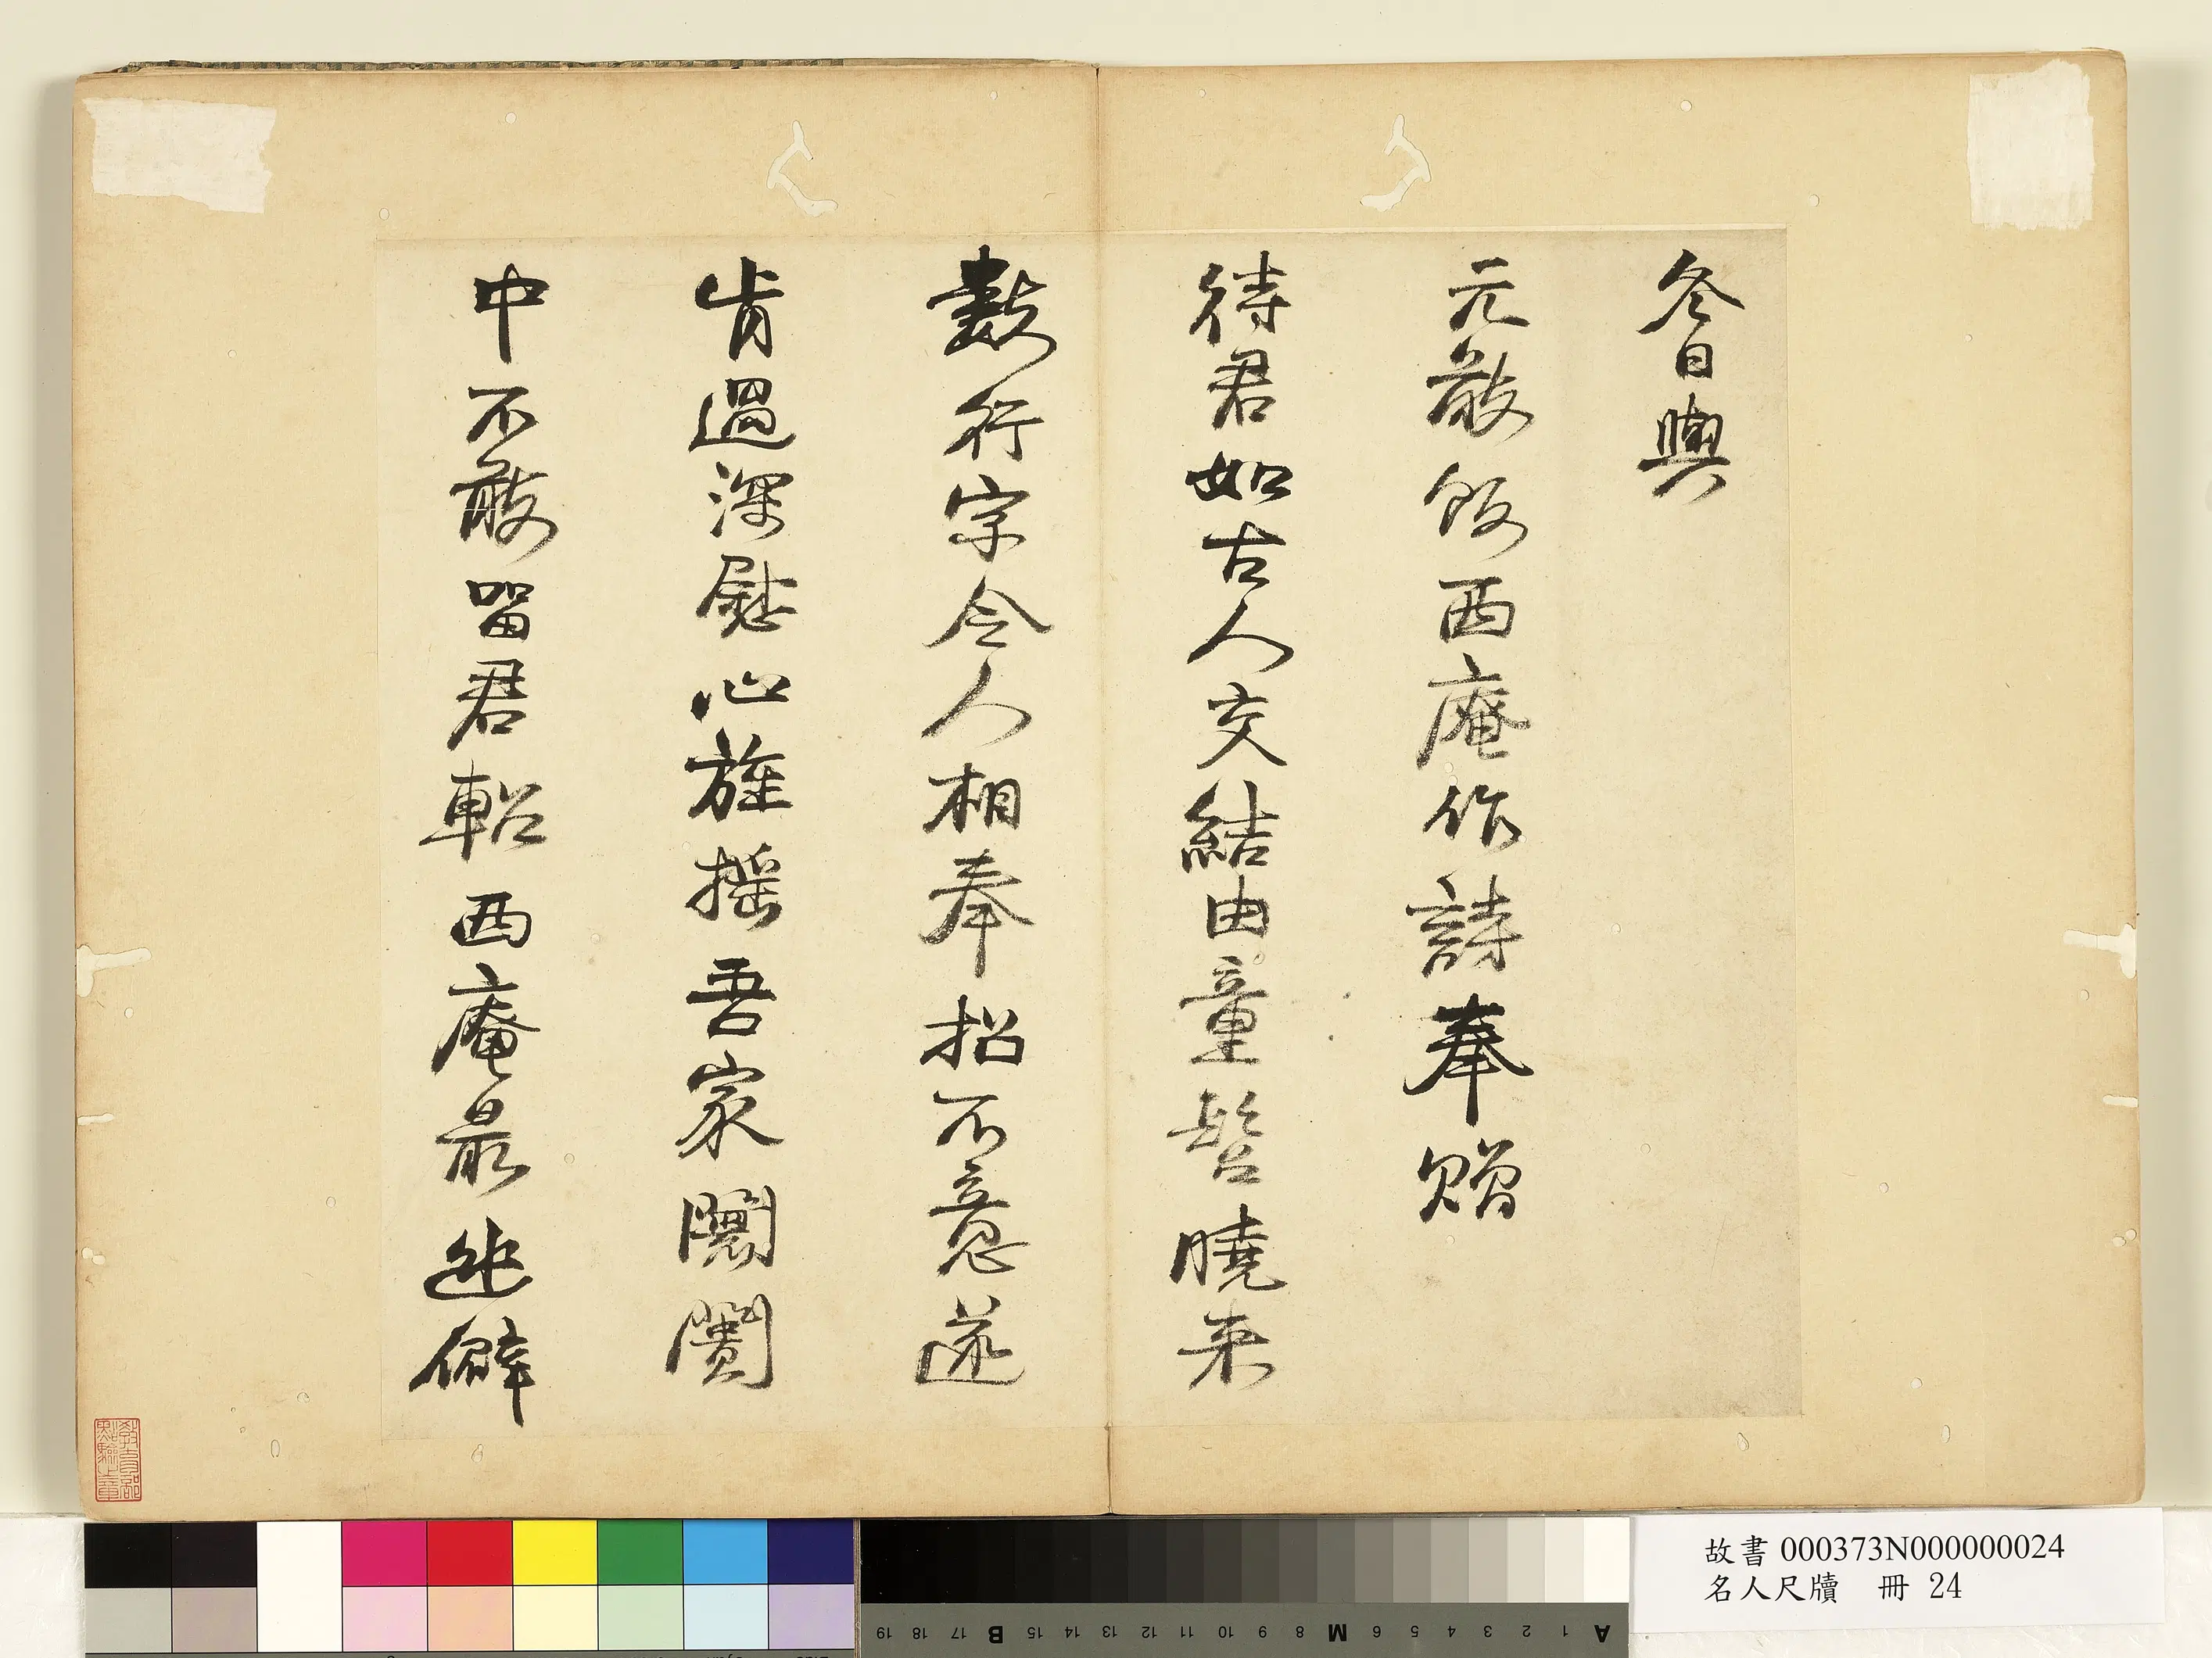 冬日與
元敬飯西庵作詩奉贈
待君如古人交結由童髫曉來
數行字令人相奉招不意遂
肯過深慰心旌搖吾家闤闠
中不敢留君軺西庵最幽僻
教育部點驗之章
故書 000373N000000024
名人尺牘 冊 24
A 1 2 3 4 5 6 M 8 9 10 11 12 13 14 15 B 17 18 19